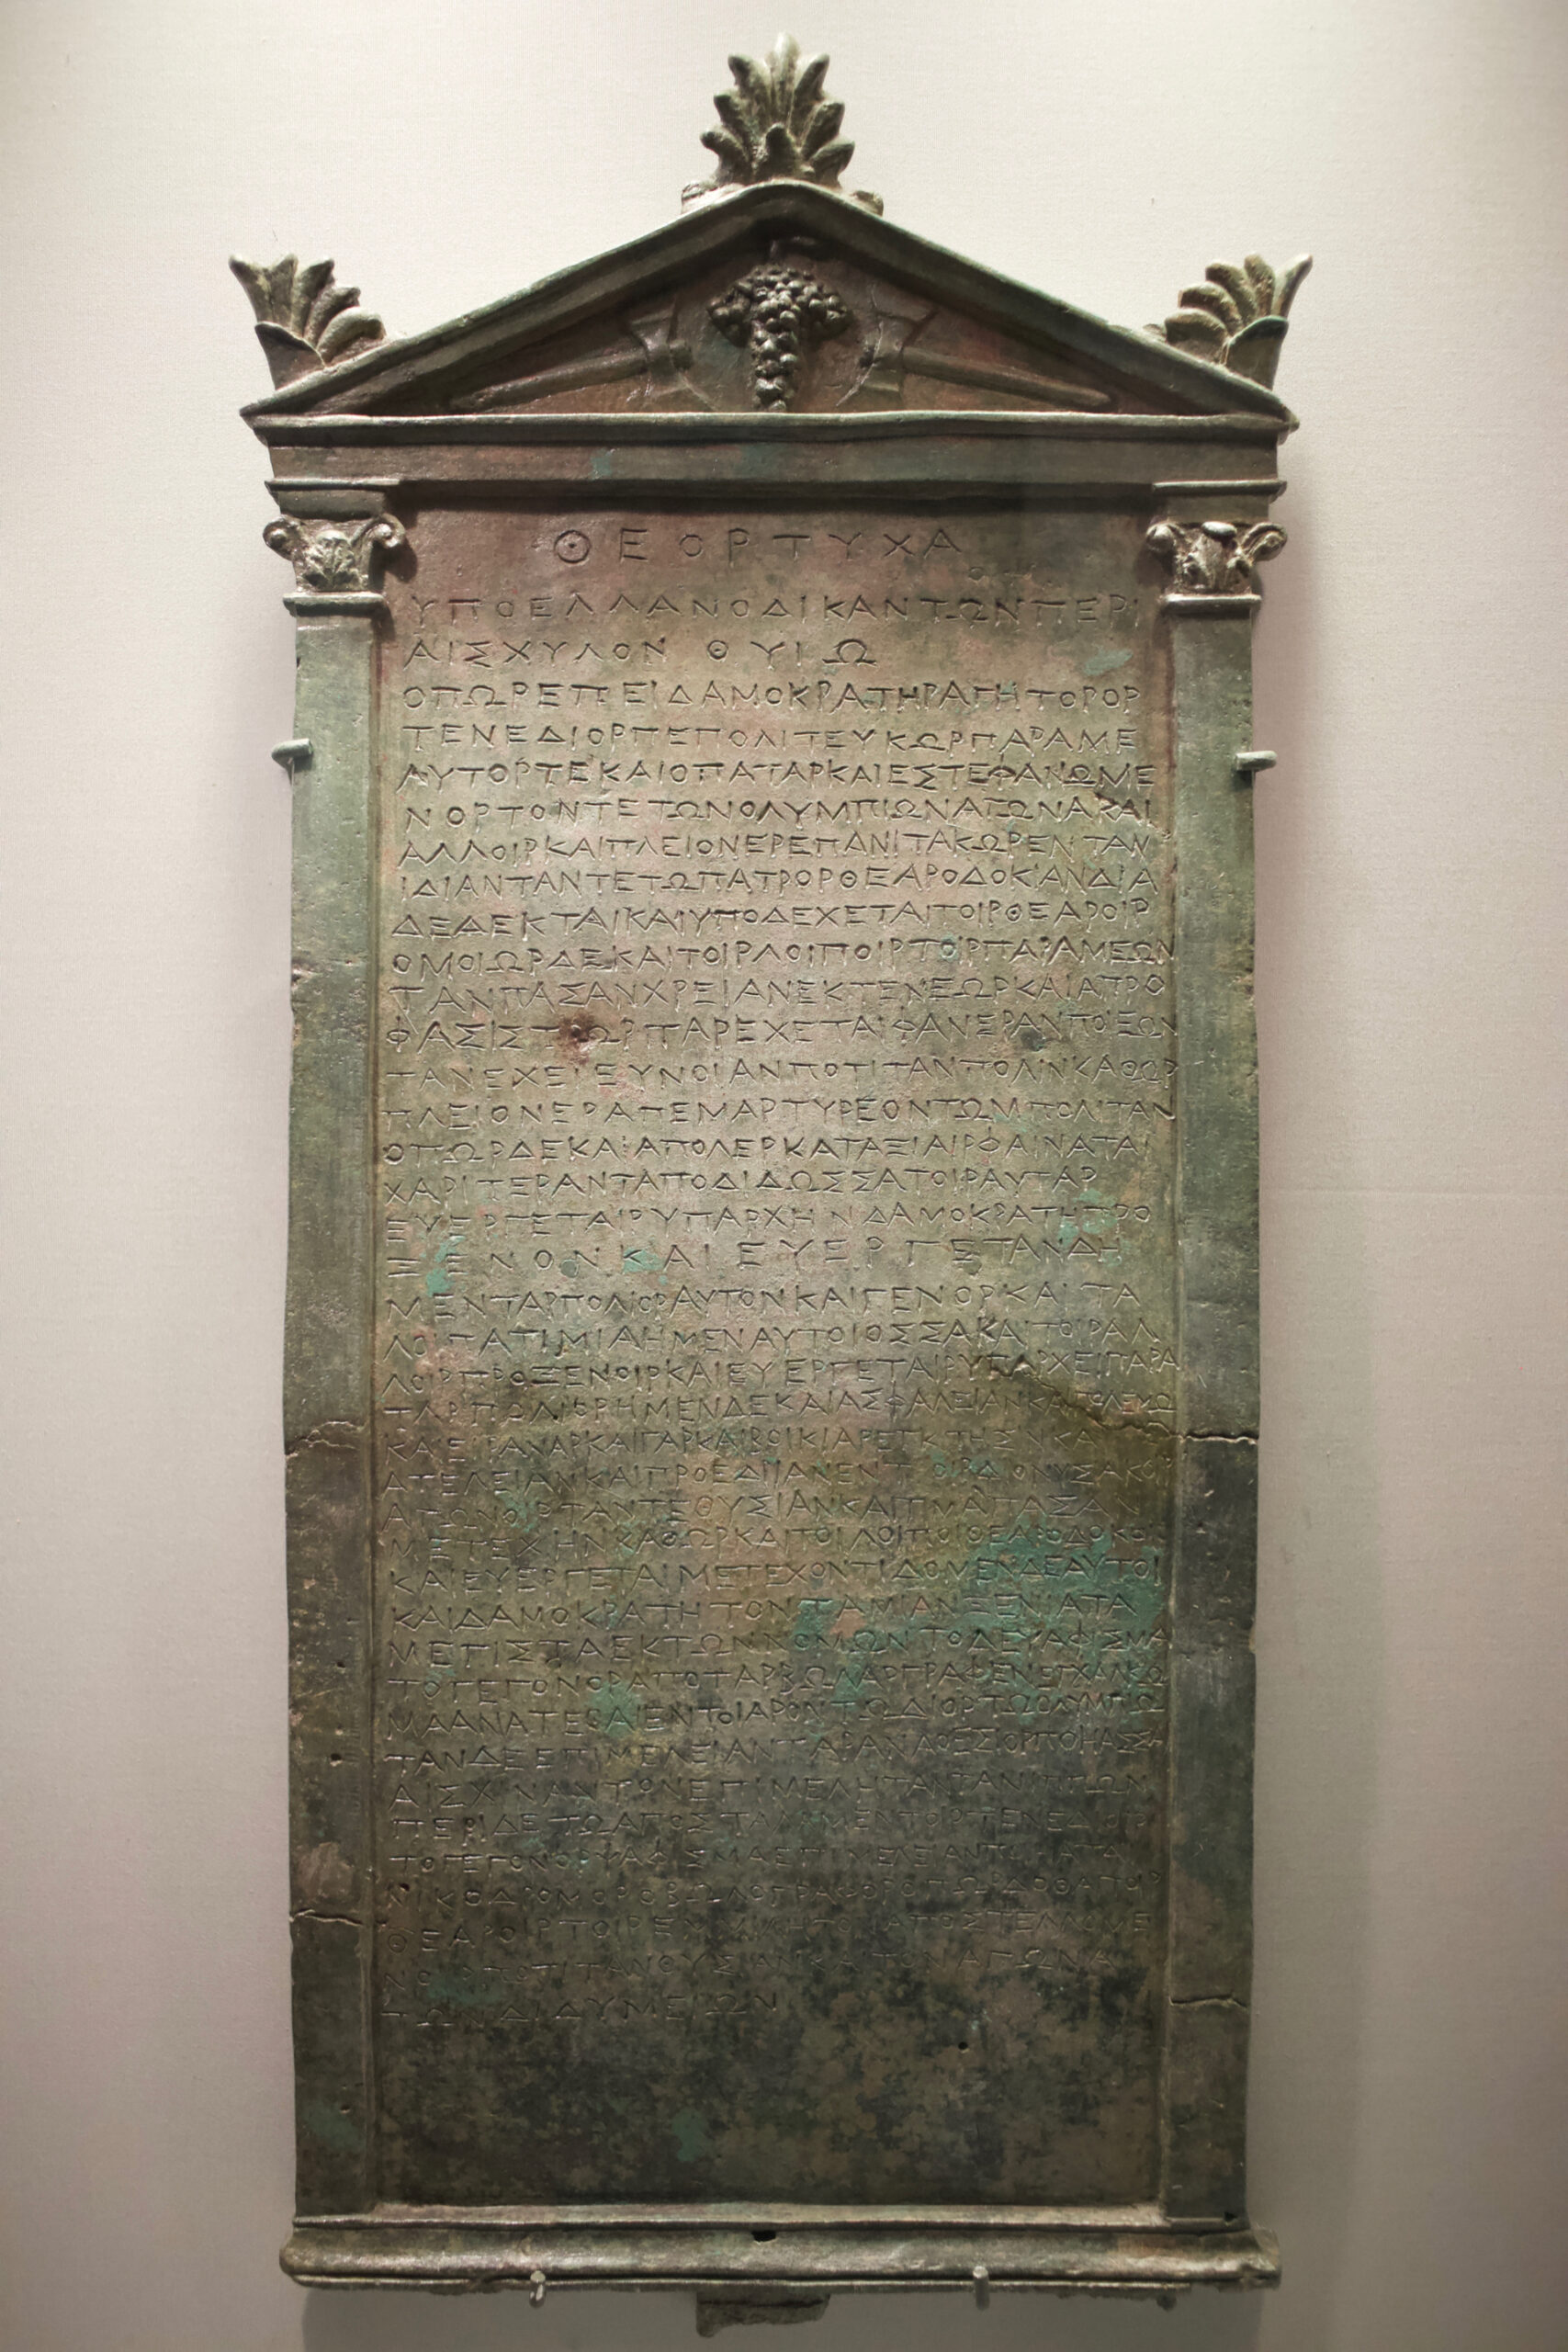 ΘΕΟΡΤΥΧΑ
ΥΠΟΕΛΛΑΝΟΔΙΚΑΝΤΩΝΠΕΡΙ
ΑΙΣΧΥΛΟΝ ΘΥΙΩ
ΟΠΩΡΕΠΕΙΔΑΜΟΚΡΑΤΗΡΑΓΗΤΟΡΟΡ
ΤΕΝΕΔΙΟΡΠΕΠΟΛΙΤΕΥΚΩΡΠΑΡΑΜΕ
ΑΥΤΟΡΤΕΚΑΙΟΠΑΤΑΡΚΑΙΕΣΤΕΦΑΝΩΜΕ
ΝΟΡΤΟΝΤΕΤΩΝΟΛΥΜΠΙΩΝΑΓΩΝΑΚΑΙ
ΑΛΛΟΙΡΚΑΙΠΛΕΙΟΝΕΡΕΠΑΝΙΤΑΚΩΡΕΝΤΑΝ
ΙΔΙΑΝΤΑΝΤΕΤΩΠΑΤΡΟΡΘΕΑΡΟΔΟΚΙΑΝΔΙΑ
ΔΕΔΕΚΤΑΙΚΑΙΥΠΟΔΕΧΕΤΑΙΤΟΙΡΘΕΑΡΟΙΡ
ΟΜΟΙΩΡΔΕΚΑΙΤΟΙΡΛΟΙΠΟΙΡΤΟΙΡΠΑΡΑΜΕΩΝ
ΤΑΝΠΑΣΑΝΧΡΕΙΑΝΕΚΤΕΝΕΩΡΚΑΙΑΠΡΟ
ΦΑΣΙΣΤΩΡΠΑΡΕΧΕΤΑΙΦΑΝΕΡΑΝΠΟΙΕΩΝ
ΤΑΝΕΧΕΙΕΥΝΟΙΑΝΠΟΤΙΤΑΝΠΟΛΙΝΚΑΘΩΡ
ΠΛΕΙΟΝΕΡΑΠΕΜΑΡΤΥΡΕΟΝΤΩΜΠΟΛΙΤΑΝ
ΟΠΩΡΔΕΚΑΙΑΠΟΛΕΡΚΑΤΑΞΙΑΙΡΦΑΙΝΑΤΑΙ
ΧΑΡΙΤΕΡΑΝΤΑΠΟΔΙΔΩΣΣΑΤΟΙΡΑΥΤΑΡ
ΕΥΕΡΓΕΤΑΙΡΥΠΑΡΧΗΝΔΑΜΟΚΡΑΤΗΠΡΟ
ΞΕΝΟΝΚΑΙΕΥΕΡΓΕΤΑΝΔΗ
ΜΕΝΤΑΡΠΟΛΙΟΡΑΥΤΟΝΚΑΙΓΕΝΟΡΚΑΙΤΑ
ΛΟΙΠΑΤΙΜΙΑΗΜΕΝΑΥΤΟΙΟΣΣΑΚΑΙΤΟΙΡΑΛ
ΛΟΙΡΠΡΟΞΕΝΟΙΡΚΑΙΕΥΕΡΓΕΤΑΙΡΥΠΑΡΧΕΙΠΑΡΑ
ΤΑΡΠΟΛΙΟΡΗΜΕΝΔΕΚΑΙΑΣΦΑΛΕΙΑΝΚΑΙΠΟΛΕΜΩ
ΚΑΙΕΙΡΑΝΑΡΚΑΙΓΑΡΚΑΙΒΟΙΚΙΑΡΕΓΚΤΗΣΙΝΚΑΙ
ΑΤΕΛΕΙΑΝΚΑΙΠΡΟΕΔΙΙΑΝΕΝΤΟΙΡΔΙΟΝΥΣΑΚΟΙΡ
ΑΓΩΝΟΙΡΤΑΝΤΕΘΥΣΙΑΝΚΑΙΤΙΜΑΠΑΣΑΝ
ΜΕΤΕΧΗΝΚΑΘΩΡΚΑΙΤΟΙΛΟΙΠΟΙΘΕΑΡΟΔΟΚΟΙ
ΚΑΙΕΥΕΡΓΕΤΑΙΜΕΤΕΧΟΝΤΙΔΟΜΕΝΔΕΑΥΤΟΙ
ΚΑΙΔΑΜΟΚΡΑΤΗΤΟΝΤΑΜΙΑΝΞΕΝΙΑΤΑ
ΜΕΓΙΣΤΑΕΚΤΩΝΝΟΜΩΝΤΟΔΕΨΑΦΙΣΜΑ
ΤΟΓΕΓΟΝΟΡΑΠΟΤΑΡΒΩΛΑΡΓΡΑΦΕΝΕΓΧΑΛΚΩ
ΜΑΑΝΑΤΕΘΑΙΕΝΤΟΙΑΡΟΝΤΩΔΙΟΡΤΩΟΛΥΜΠΙΩ
ΤΑΝΔΕΕΠΙΜΕΛΕΙΑΝΤΑΡΑΝΑΘΕΣΙΟΡΠΟΙΗΑΣΣΑΙ
ΑΙΣΧΙΝΑΝΤΟΝΕΠΙΜΕΛΗΤΑΝΤΑΝΙΠΠΩΝ
ΠΕΡΙΔΕΤΩΑΠΟΣΤΑΛΑΜΕΝΤΟΙΡΤΕΝΕΔΙΟΙΡ
ΤΟΓΕΓΟΝΟΡΨΑΦΙΣΜΑΕΠΙΜΕΛΕΙΑΝ
ΝΙΚΟΔΡΟΜΟΡΟΒΩΛΟΓΡΑΦΟΡΟΠΩΡΔΟΘΑΙΤΟΙΡ
ΘΕΑΡΟΙΡΤΟΙΡΕΜΜΙΛΗΤΟΝΑΠΟΣΤΕΛΛΟΜΕ
ΝΟΙΡΠΟΤΙΤΑΝΘΥΣΙΑΝΚΑΙΤΟΝΑΓΩΝΑ
ΤΩΝΔΙΔΥΜΕΙΩΝ